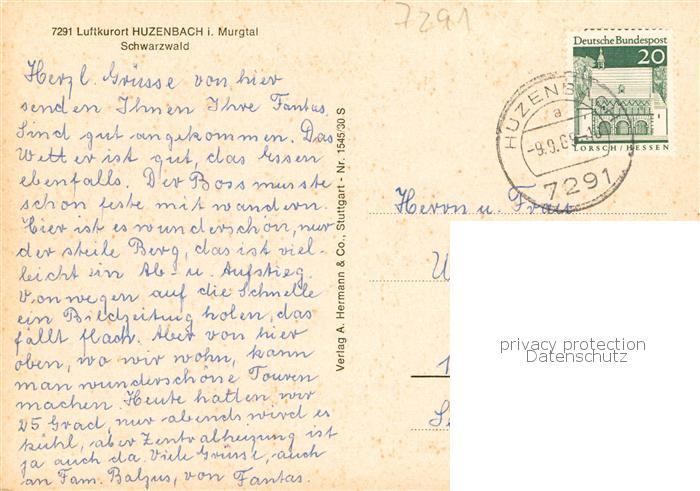 7291
7291 Luftkurort HUZENBACH i. Murgtal
Schwarzwald
Herzl. Grüsse von hier
senden Ihnen Ihre Fantas.
Sind gut angekommen. Das
Wetter ist gut, das Essen
ebenfalls. Der Boss musste
schon feste mit wandern.
Hier ist es wunderschön, nur
der steile Berg, das ist viel-
leicht ein Ab- u. Aufstieg.
Von wegen auf die Schnelle
ein Bildzeitung holen, das
fällt flach. Aber von hier
oben, wo wir wohn, kann
man wunderschöne Touren
machen. Heute hatten wir
25 Grad, nur abends wird es
kühl, aber Zentralheizung ist
ja auch da. Viele Grüsse, auch
an Fam. Balzus, von Fantas.
Verlag A. Hermann & Co., Stuttgart - Nr. 1545/30 S
Deutsche Bundespost
20
LORSCH/HESSEN
HUZENB
a
-9.9.69-18
7291
Herrn u. Frau
W
1
privacy protection
Datenschutz